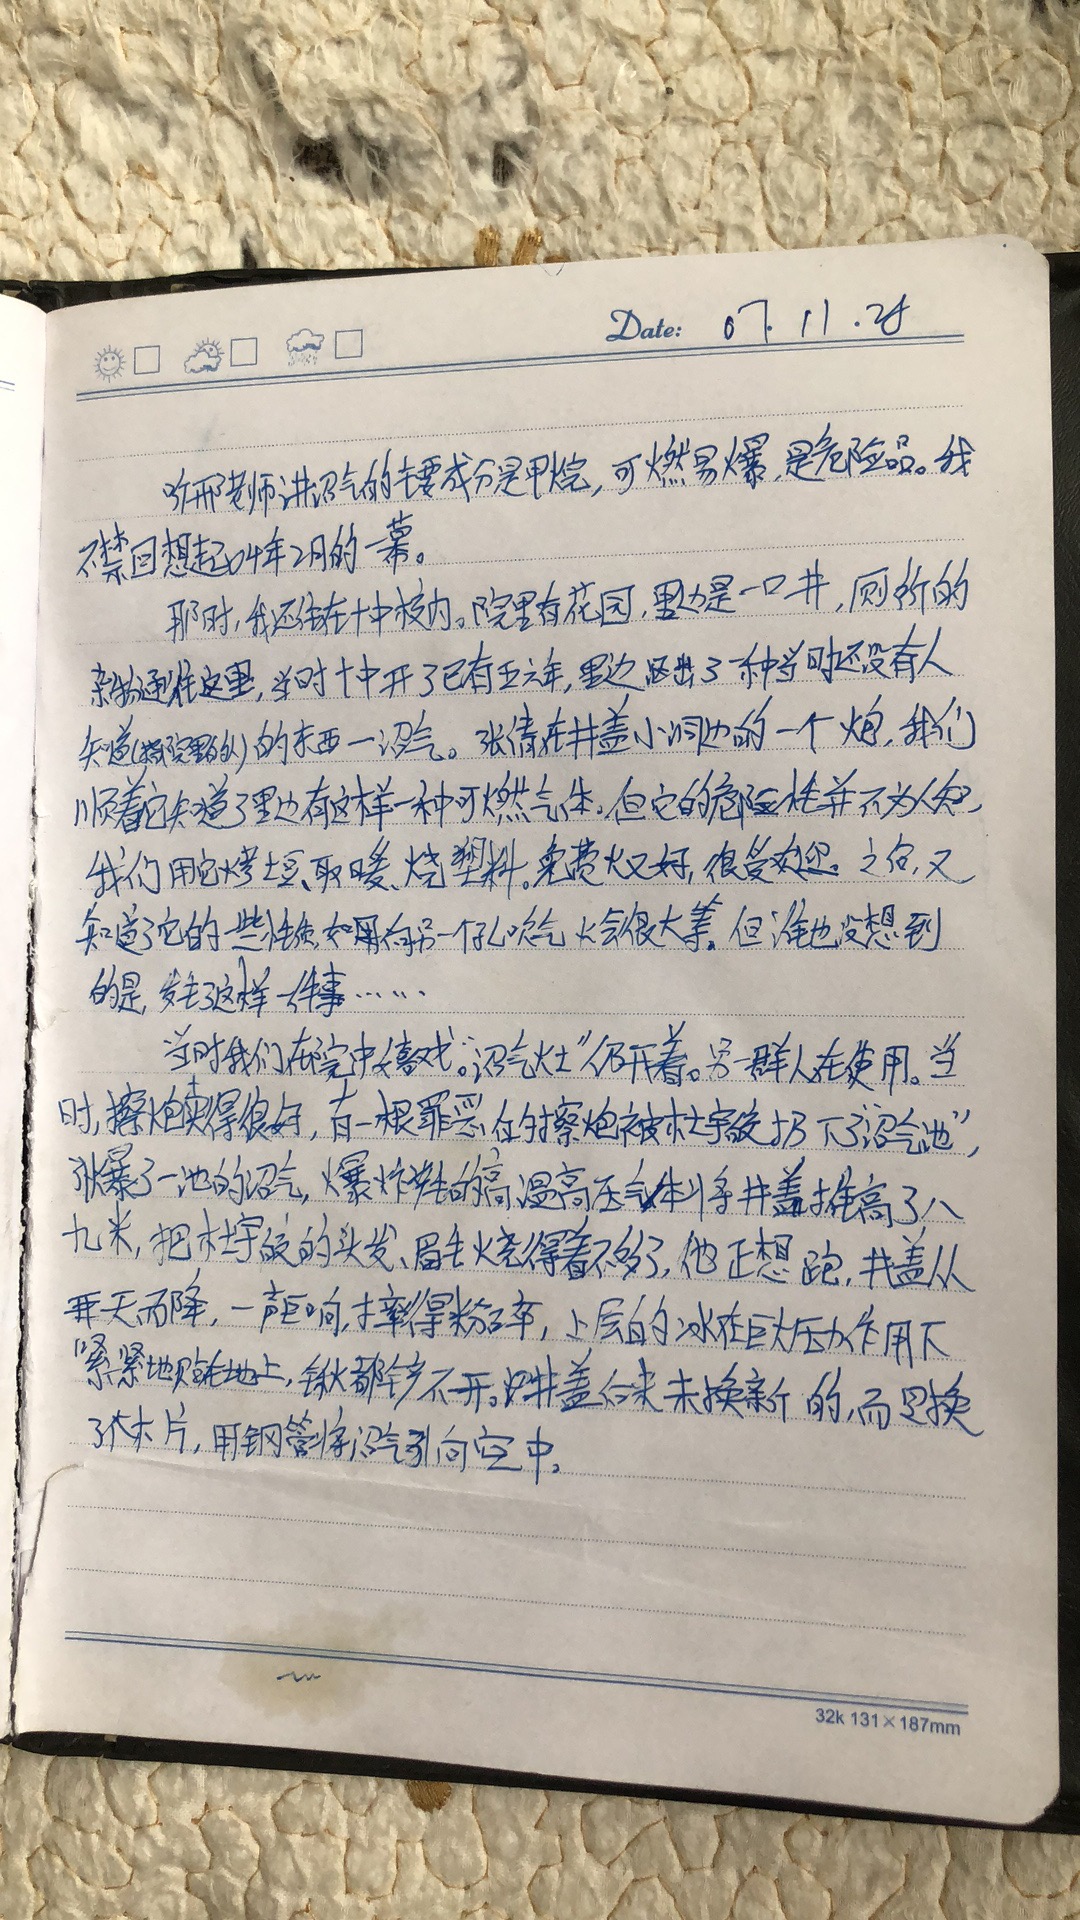 Date: 07.11.28
听邢老师讲沼气的主要成分是甲烷,可燃易爆,是危险品。我
不禁回想起04年2月的一幕。
那时,我还住在十中校内。院里有花园,里边是一口井,厕所的
杂物通往这里,当时十中开了已有五六年,里边匿出了一种当时还没有人
知道(指院里的人)的东西—沼气。张倩在井盖小洞边的一个炮,我们
顺着它知道了里边有这样一种可燃气体。但它的危险性并不为人知,
我们用它烤土豆、取暖、烧塑料。免费火又好,很受欢迎。之后,又
知道了它的一些性质,如用向另一个孔吹气火会很大等。但谁也没想到
的是,发生了这样一件事……
当时我们在院中嬉戏。“沼气灶”仍开着。另一群人在使用。当
时,擦炮卖得很好,有一根罪恶的擦炮被杜宇皎扔下了“沼气池”,
引爆了一池的沼气,爆炸产生的高温高压气体将井盖推高了八
九米,把杜宇皎的头发、眉毛烧得着不多了,他正想跑,井盖从
天而降,一声巨响,摔得粉碎,上层的冰在巨大压力作用下
紧紧地贴在地上,锹都铲不开。井盖后来未换新的,而是换
了木片,用钢管将沼气引向空中。
32k 131×187mm